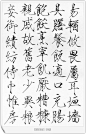 易輶攸畏屬耳垣墻
具膳飡飯適口充腸
飽飫烹宰飢厭糟糠
親戚故舊老少異糧
妾御績紡侍巾帷房